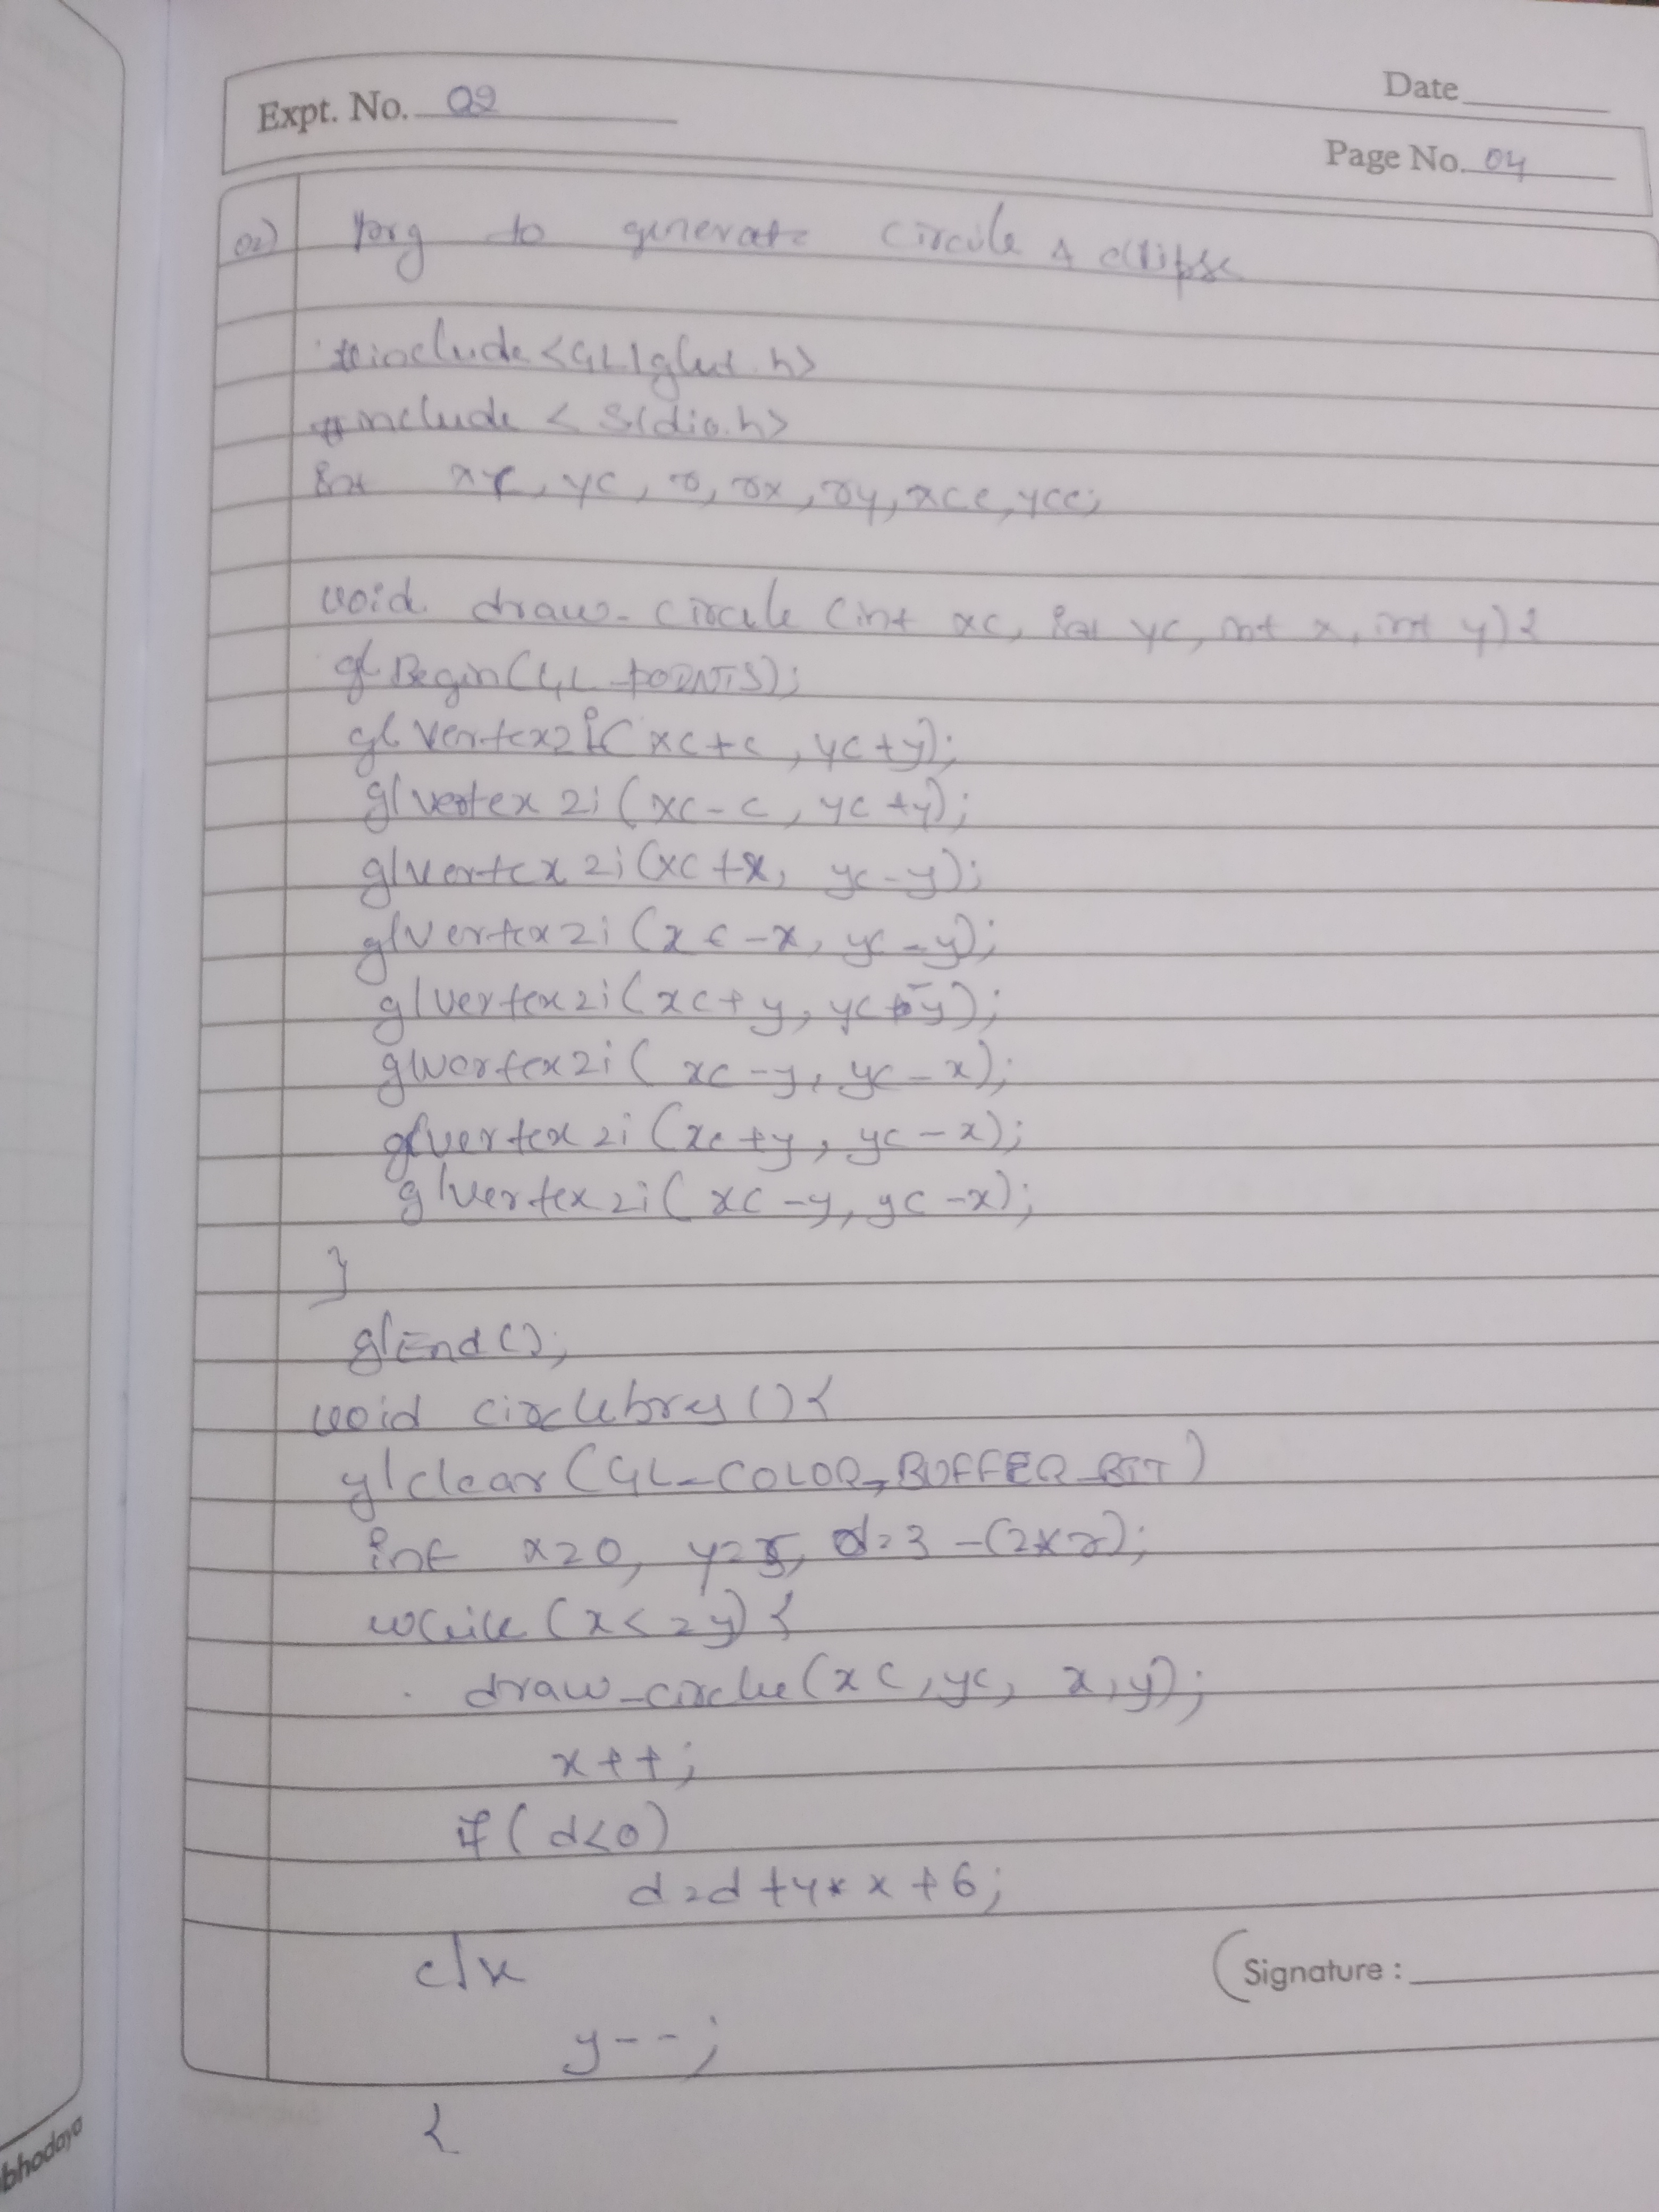 Date
Expt. No. 02
Page No. 04
02) Prg to generate circule & ellipse
#include <GL/glut.h>
#include < stdio.h>
int xc, yc, r, rx, ry, xce, yce;
void draw-circule (int xc, int yc, int x, int y) {
glBegin(GL_POINTS);
glVertex2i(xc+c, yc+y);
glvertex 2i (xc-c, yc+y);
glvertex 2i(xc+x, yc-y);
glvertex 2i (xc-x, yc-y);
glvertex2i(xc+y, yc y);
glvertex2i( xc-y, yc-x);
glvertex 2i (xc+y, yc-x);
glvertex2i( xc-y, yc-x);
}
glEnd();
void circlebres () {
glclear (GL_COLOR_BUFFER_BIT)
int x=0, y=r, d=3-(2*r);
while (x<=y) {
draw_circle(xc,yc, x,y);
x++;
if( d<0)
d=d+4*x+6;
else
y--;
{
Signature :
bhodaya